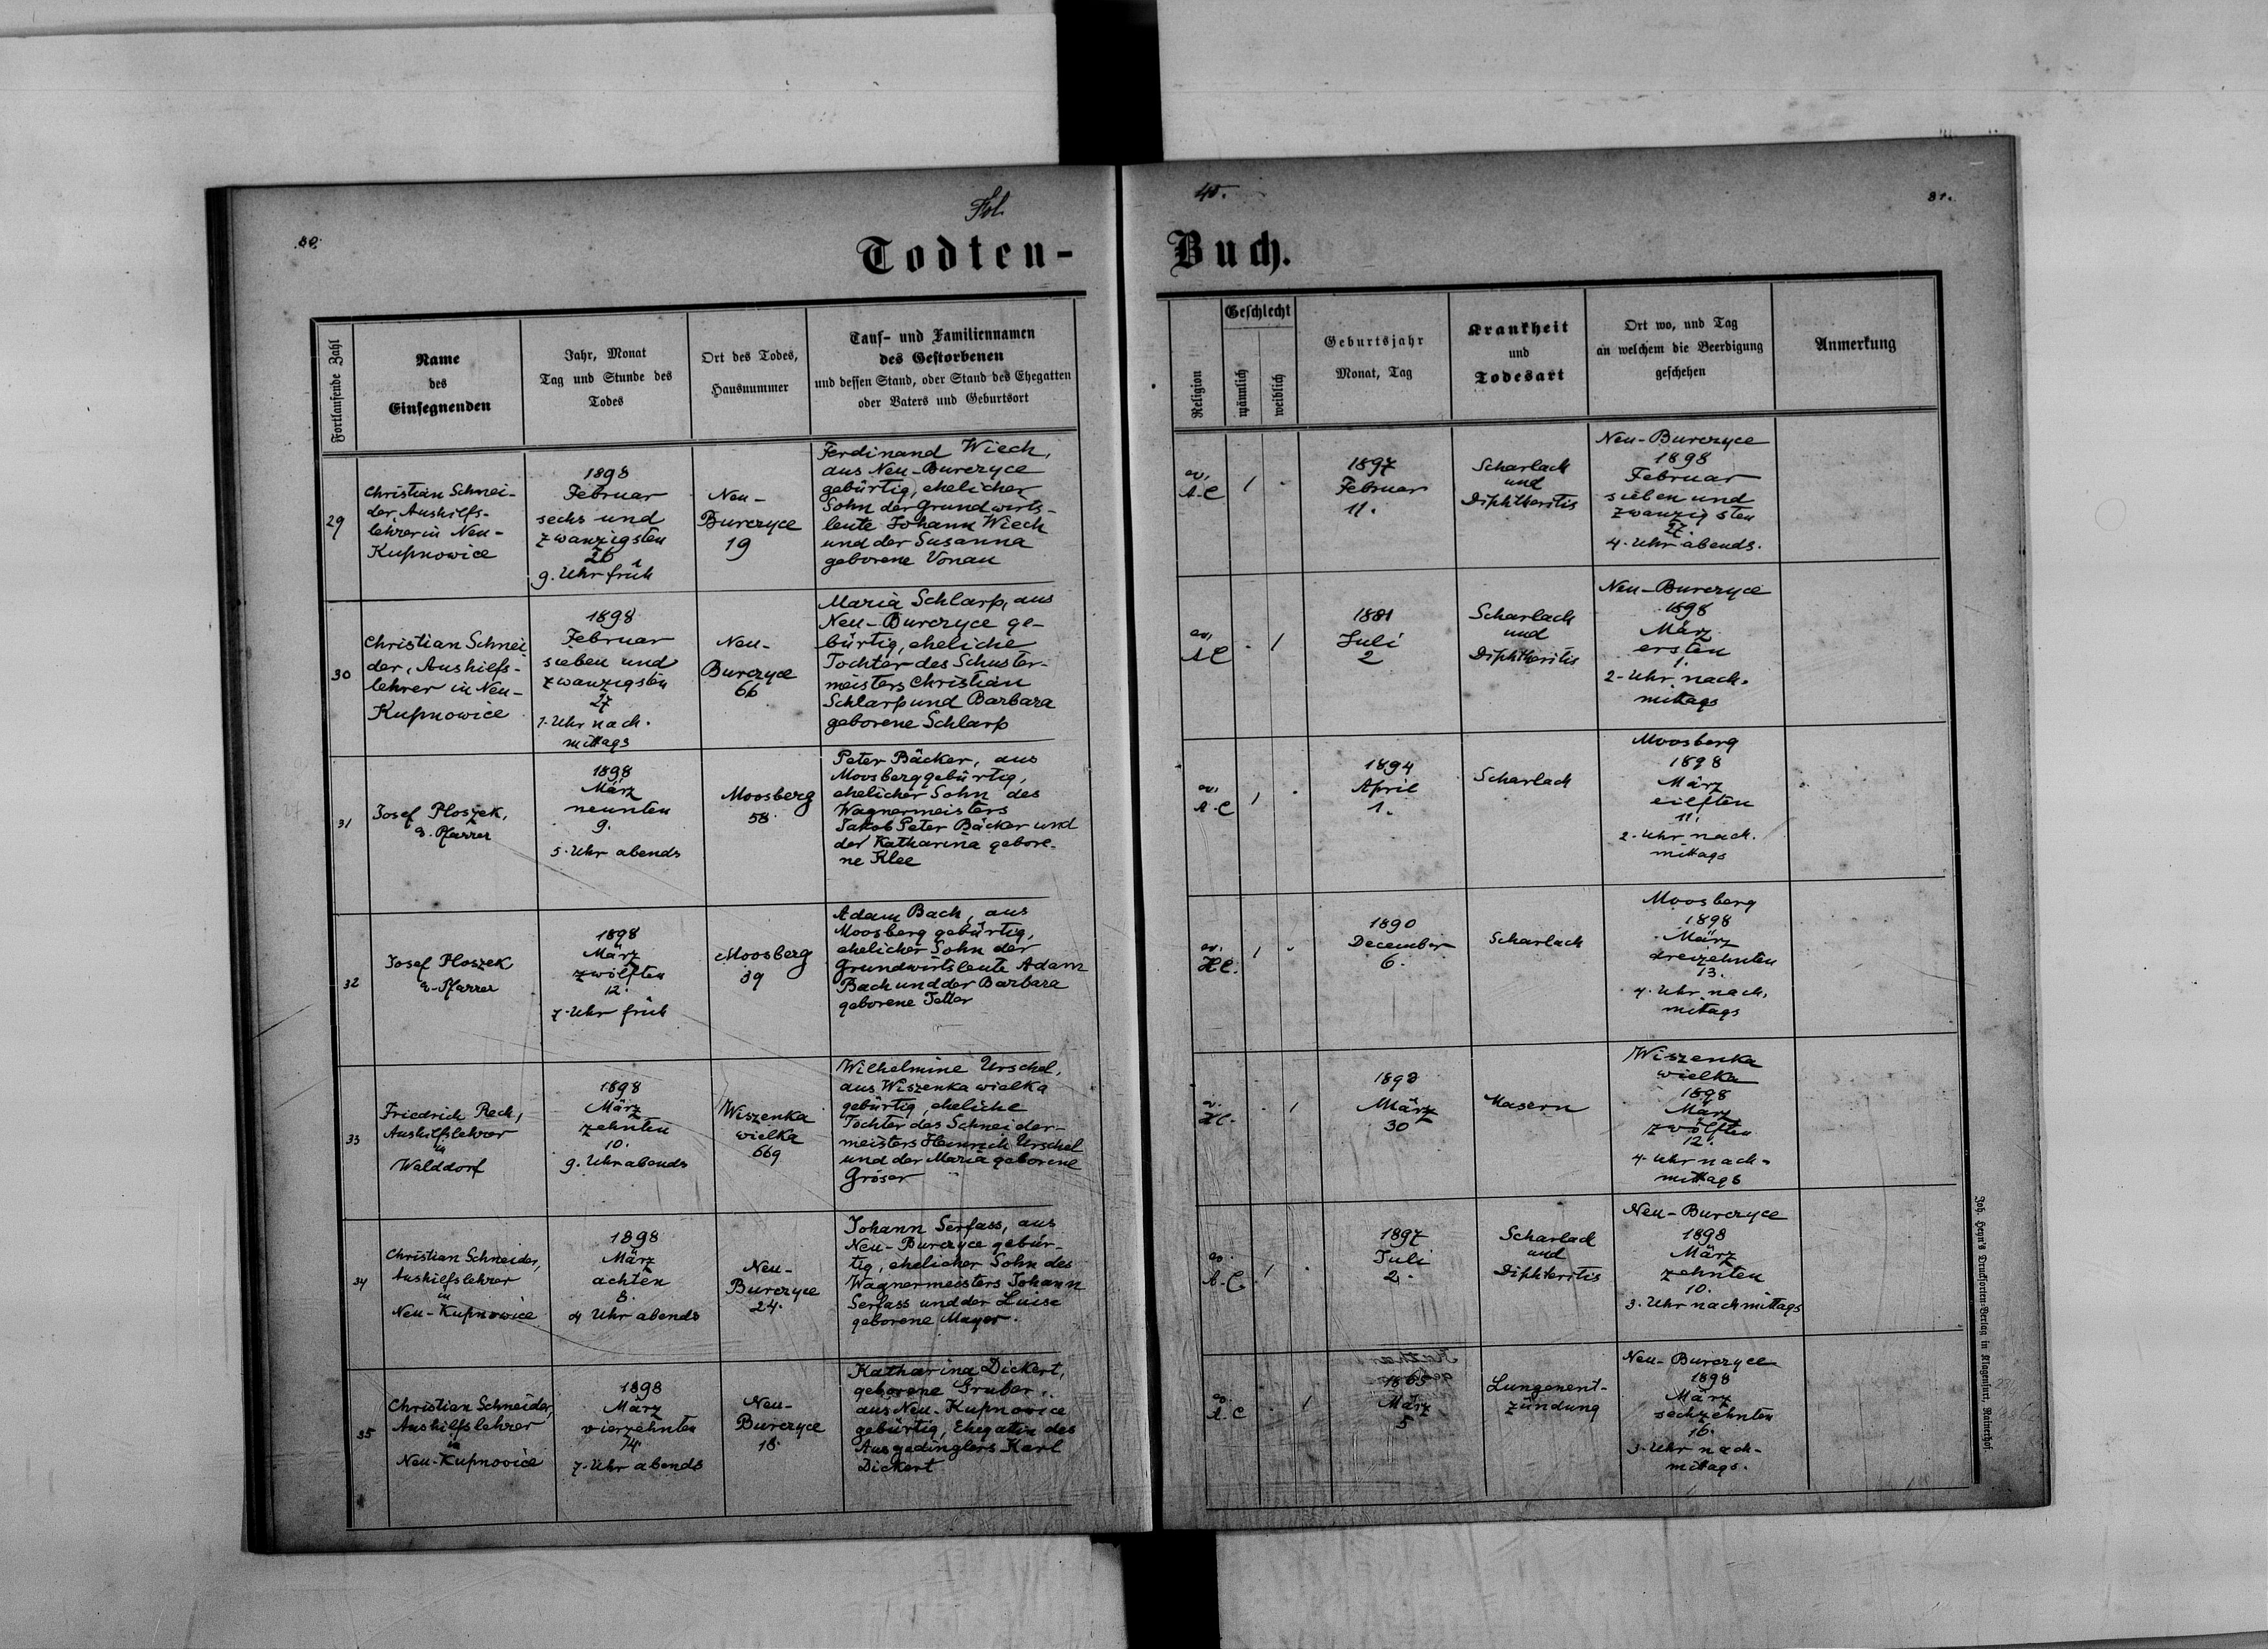 Fol.
40.
80.
81.
Todten-
Buch.
Fortlaufende Zahl
Name
des
Einsegnenden
Jahr, Monat
Tag und Stunde des
Todes
Ort des Todes,
Hausnummer
Tauf- und Familiennamen
des Gestorbenen
und dessen Stand, oder Stand des Ehegatten
oder Vaters und Geburtsort
Religion
Geschlecht
männlich
weiblich
Geburtsjahr
Monat, Tag
Krankheit
und
Todesart
Ort wo, und Tag
an welchem die Beerdigung
geschehen
Anmerkung
29
Christian Schnei-
der, Aushilfs-
lehrer in Neu-
Kupnowice
1898
Februar
sechs und
zwanzigsten
26
9. Uhr früh
Neu-
Burczyce
19
Ferdinand Wiech,
aus Neu-Burczyce
gebürtig, ehelicher
Sohn der Grundwirts-
leute Johann Wiech
und der Susanna
geborene Vonau
ev.
A.C
1
-
1897
Februar
11.
Scharlach
und
Diphtheritis
Neu-Burczyce
1898
Februar
sieben und
zwanzigsten
27.
4. Uhr abends.
30
Christian Schnei
der, Aushilfs-
lehrer in Neu-
Kupnowice
1898
Februar
sieben und
zwanzigsten
27
1. Uhr nach-
mittags
Neu-
Burczyce
66
Maria Schlarp, aus
Neu-Burczyce ge-
bürtig, eheliche
Tochter des Schuster-
meisters Christian
Schlarp und Barbara
geborene Schlarp
ev.
A.C
-
1
1881
Juli
2
Scharlach
und
Diphtheritis
Neu-Burczyce
1898
März
ersten
1.
2-Uhr nach-
mittags
31
Josef Ploszek,
e. Pfarrer
1898
März
neunten
9.
5. Uhr abends
Moosberg
58.
Peter Bäcker, aus
Moosberg gebürtig,
ehelicher Sohn des
Wagnermeisters
Jakob Peter Bäcker und
der Katharina gebore-
ne Klee
ev.
A.C
1
-
1894
April
1.
Scharlach
Moosberg
1898
März
eilften
11.
2. Uhr nach-
mittags
32
Josef Ploszek
e-Pfarrer
1898
März
zwölften
12.
7. Uhr früh
Moosberg
39
Adam Bach, aus
Moosberg gebürtig,
ehelicher Sohn der
Grundwirtsleute Adam
Bach und der Barbara
geborene Tetter
ev.
H.C.
1
-
1890
December
6.
Scharlach
Moosberg
1898
März
dreizehnten
13.
4. Uhr nach-
mitags
33
Friedrich Rech,
Aushilfslehrer
in
Walddorf
1898
März
zehnten
10.
9. Uhr abends
Wiszenka
wielka
669
Wilhelmine Urschel,
aus Wiszenka wielka
gebürtig, eheliche
Tochter des Schneider-
meisters Heinrich Urschel
und der Maria geborene
Gröser
ev.
H.C.
-
1
März
30
Masern
Wiszenka
wielka
1898
März
zwölften
12.
4. Uhr nach-
mittags
34
Christian Schneider,
Aushilfslehrer
in
Neu-Kupnowice
1898
März
achten
8.
4 Uhr abends
Neu-
Burczyce
24.
Johann Serfass, aus
Neu-Burczyce gebür-
tig, ehelicher Sohn des
Wagnermeisters Johann
Serfass und der Luise
geborene Mayer.
ev.
A.C.
1
-
1897
Juli
2.
Scharlach
und
Diphteritis
Neu-Burczyce
1898
März
zehnten
10.
3. Uhr nachmittags
35
Christian Schneider,
Aushilfslehrer
in
Neu-Kupnovice
1898
März
vierzehnten
14.
7. Uhr abends
Neu-
Burczyce
18.
Katharina Dickert,
geborene Gruber,
aus Neu-Kupnovice
gebürtig, Ehegatin des
Ausgedinglers Karl
Dickert
ev.
A.C
-
1
1865
März
5
Lungenent-
zündung
Neu-Burczyce
1898
März
sechzehnten
16.
3. Uhr nach-
mittags.
Joh. Heyn's Drucksorten-Verlag in Klagenfurt, Rainerhof.